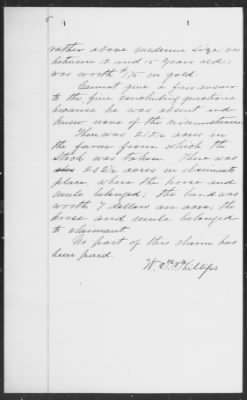 5
rather above medium size, was
between 12 and 15 years old;
was worth $115 in gold.
Cannot give a fair answer
to the five concluding questions
because he was absent and
knew none of the circumstances.
There was 212½ acres in
the farm from which the
stock was taken. There was
652½ acres in claimants
place, where the horse and
mule belonged; the land was
worth 7 dollars an acre; the
horse and mule belonged
to claimant
No part of this claim has
been paid.
Phillips